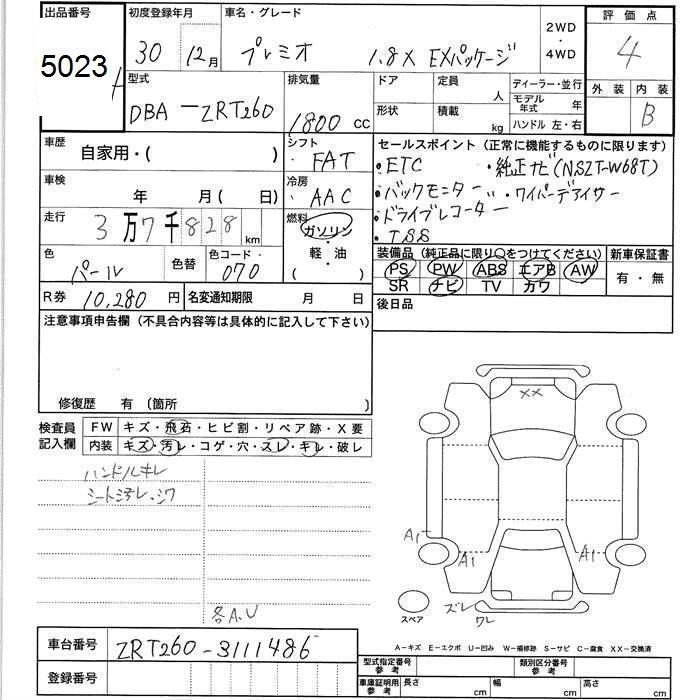 出品番号 初度登録年月 車名・グレード 2WD・4WD 評価点
5023 30 12月 プレミオ 1.8X EXパッケージ 4
型式 排気量 ドア 定員 人 ディーラー・並行 外装 内装
DBA-ZRT260 1800cc 形状 積載 kg モデル年式 年 B
ハンドル 左・右
車歴 シフト セールスポイント (正常に機能するものに限ります)
自家用・( ) FAT ・ETC ・純正ナビ(NSZT-W68T)
車検 冷房 ・バックモニター 〃・ワイパーデアイサー
年 月( 日) AAC ・ドライブレコーダー
走行 3万7千828km 燃料 ガソリン・軽・油 ・TSS
色 色替 色コード・ 装備品 (純正品に限り○をつけてください) 新車保証書
パール 070 PS PW ABS エアB AW 有・無
SR ナビ TV カワ
R券 10,280円 名変通知期限 月 日 後日品
注意事項申告欄 (不具合内容等は具体的に記入して下さい)
修復歴 有 〔箇所 〕
検査員記入欄 FW キズ・飛石・ヒビ割・リペア跡・X要
内装 キズ・汚レ・コゲ・穴・スレ・キレ・破レ
ハンドルキレ
シート汚レ・シワ
XX
A1
A1
A1
スペア
ズレ
ワレ
各A.U
A-キズ E-エクボ U-凹み W-補修跡 S-サビ C-腐食 XX-交換済
車台番号 ZRT260-3111486 型式指定番号 参考 類別区分番号 参考
登録番号 車庫証明用 参考 長さ cm 幅 cm 高さ cm